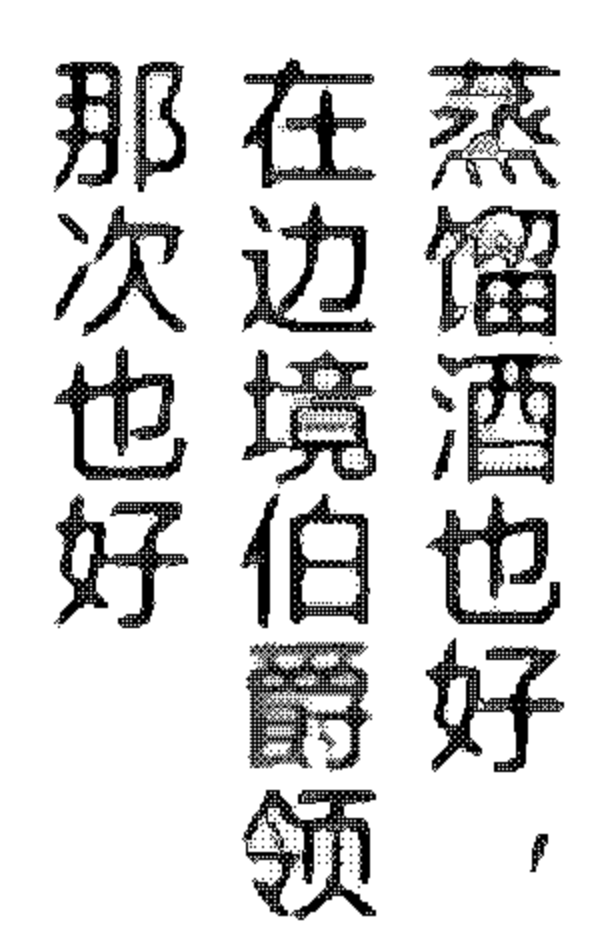 蒸馏酒也好，
在边境伯爵领
那次也好